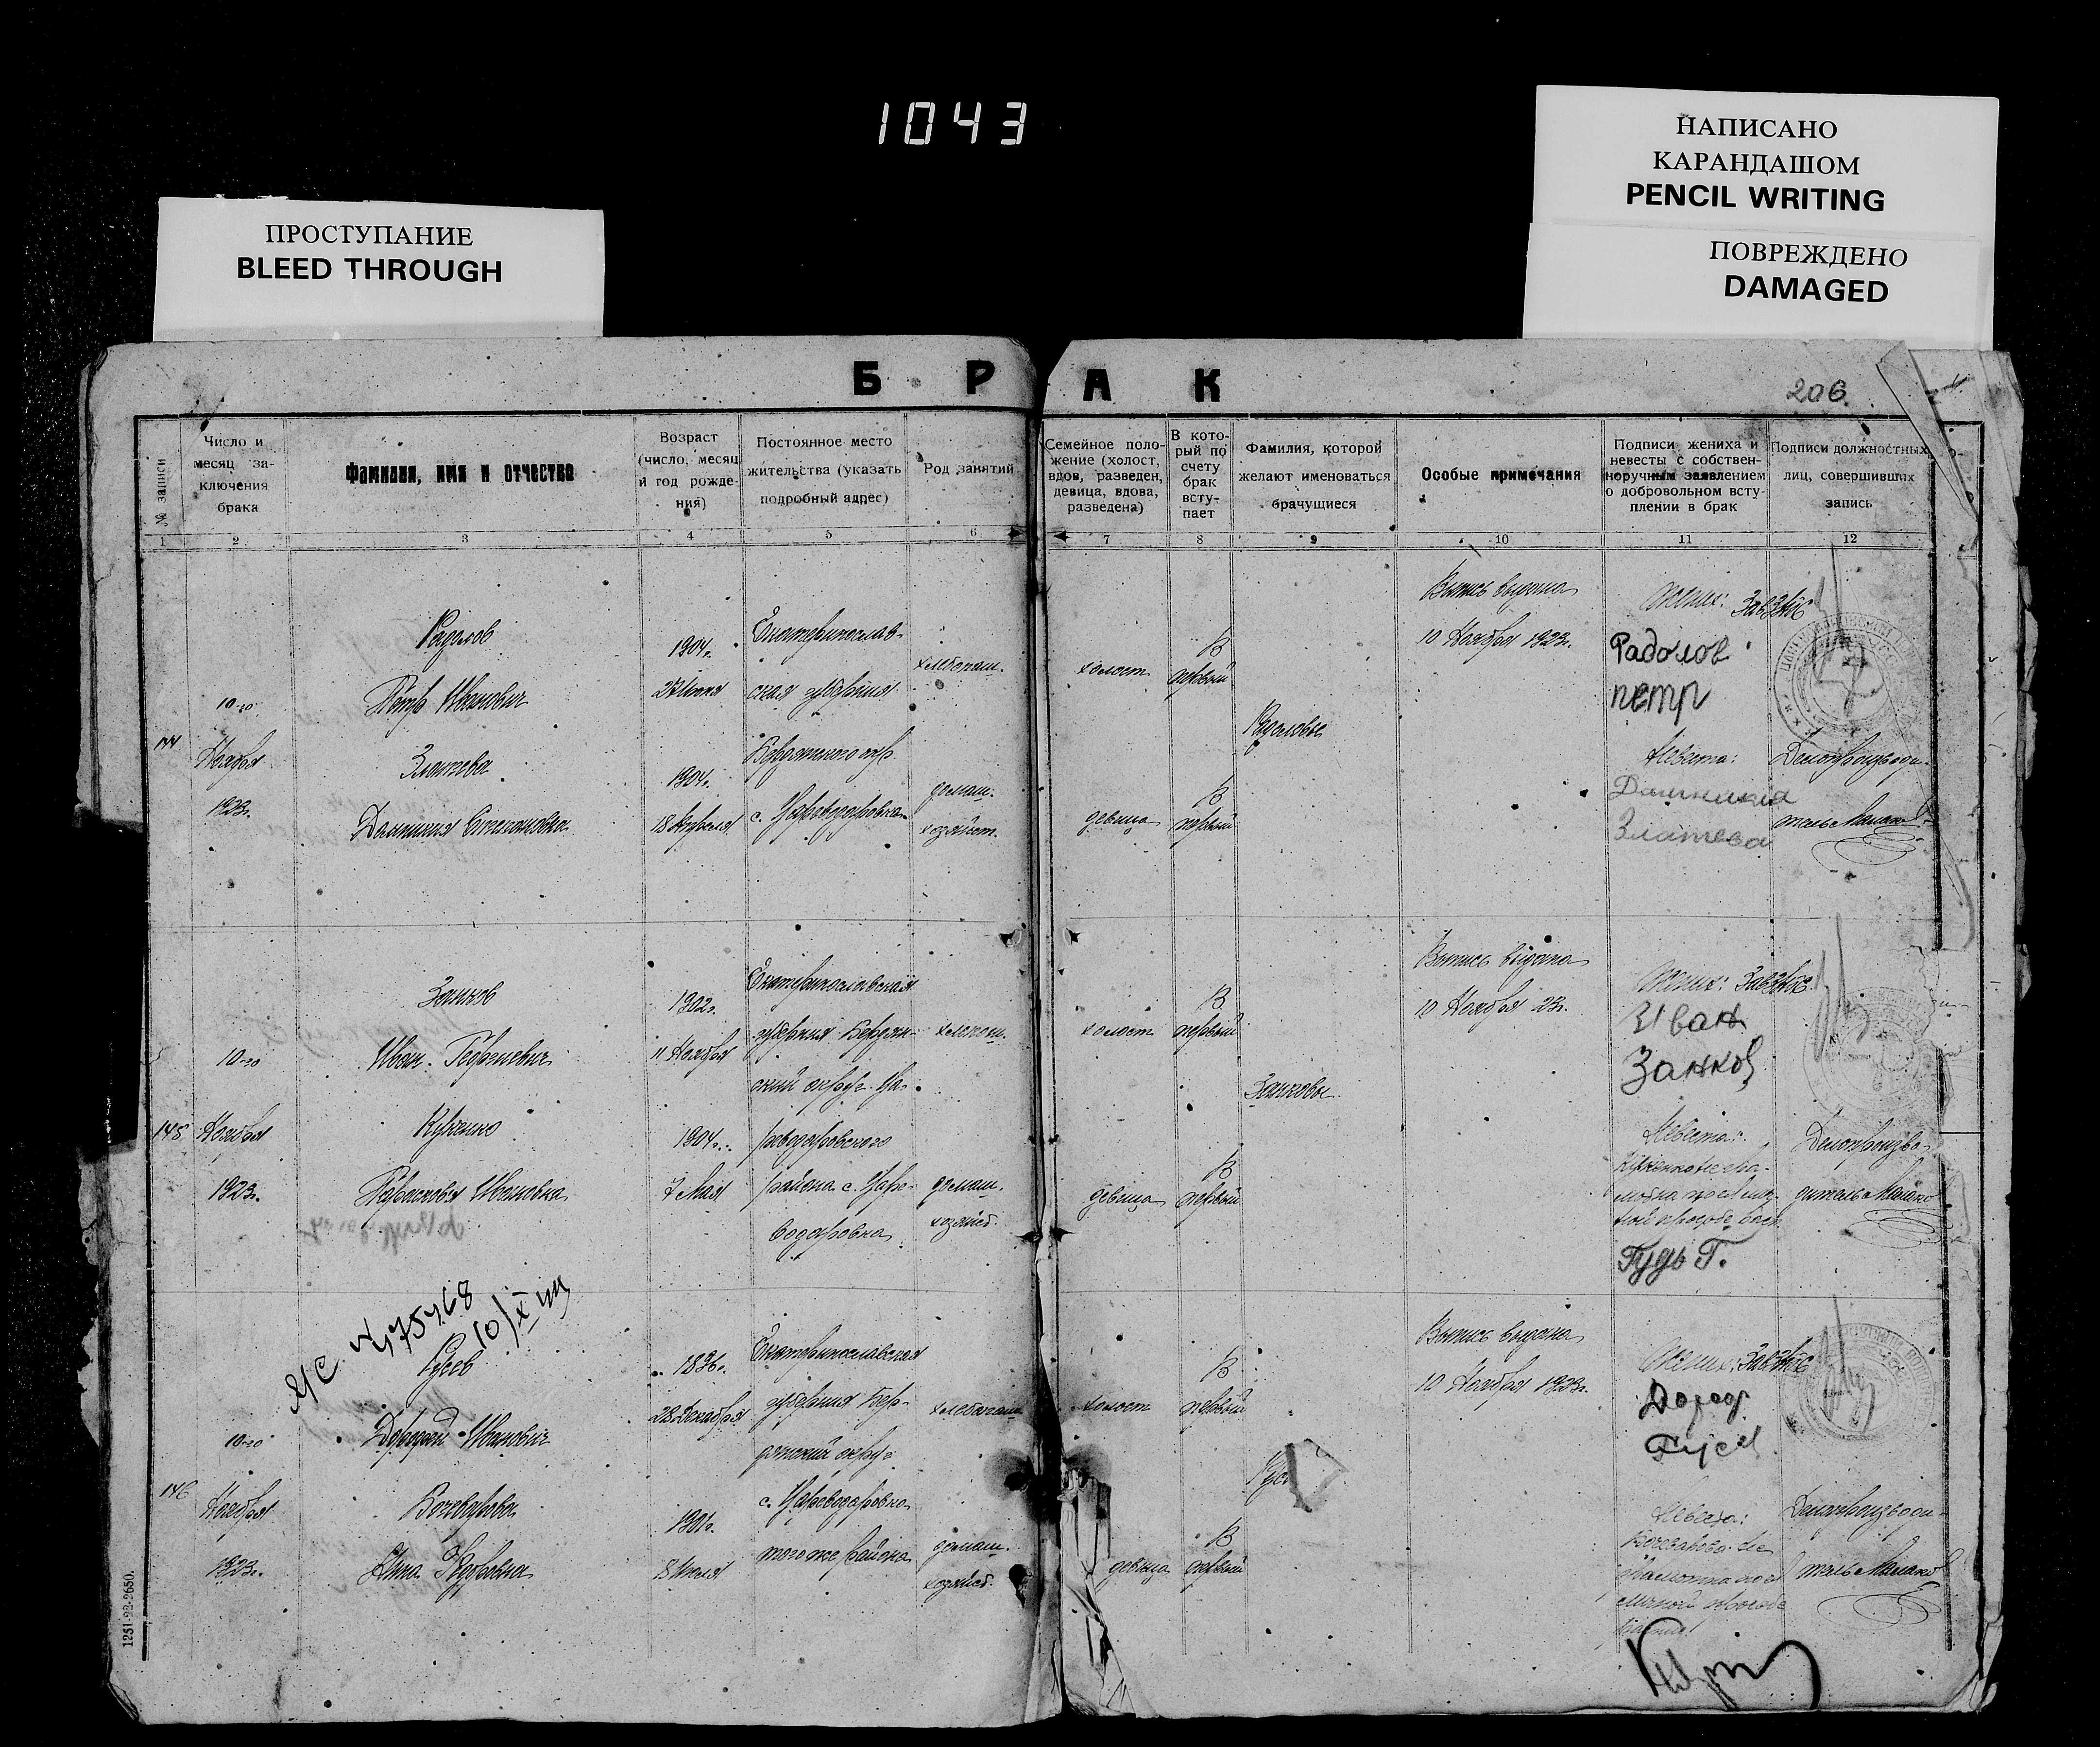 1043
НАПИСАНО
КАРАНДАШОМ
PENCIL WRITING
ПОВРЕЖДЕНО
DAMAGED
ПРОСТУПАНИЕ
BLEED THROUGH
БРАК
206
№ записи
Число и
месяц за-
ключения
брака
Фамилия, имя и отчество
Возраст
(число, месяц
и год рожде-
ния)
Постоянное место
жительства (указать
подробный адрес)
Род занятий
Семейное поло-
жение (холост,
вдов, разведен,
девица, вдова,
разведена)
В кото-
рый по
счету
брак
всту-
пает
Фамилия, которой
желают именоваться
брачущиеся
Особые примечания
Подписи жениха и
невесты с собствен-
норучным заявлением
о добровольном всту-
плении в брак
Подписи должностных
лиц, совершивших
запись
1 2 3 4 5 6 7 8 9 10 11 12
144
10-го
Ноября
1923г.
Радолов
Петр Иванович
Златева
Степановна
1904г.
1904г.
18 Апреля
Екатеринослав-
ская губерния
Бердянского окр.
с. Цареводаровка
хлебопаш.
домаш.
хозяйст.
холост
девица
В
первый
В
первый
Радоловы
Выпись выдана
10 Ноября 1923г.
Жених:
Радолов
петр
Невеста:
Златева
ЗавЗАГС
Делопроизводи-
тель
145
10-го
Ноября
1923г.
Занков
Иван Георгиевич
Куленко
Парасковья Ивановна
1902г.
11 Ноября
1904г.
7 Мая
Екатеринославская
губерния Бердян-
ский округ Ца-
реводаровского
района с. Царе-
водаровка
хлебопаш.
домаш.
хозяйст.
холост
девица
В
первый
В
первый
Занковы
Выпись выдана
10 Ноября 23г.
Жених:
Иван
Занков
Невеста:
Гудь Г.
ЗавЗАГС
Делопроизво-
дитель
146
10-го
Ноября
1923г.
10/X
Гусев
Дорофей Иванович
Бочеварова
Анна
28 Декабря
1901г.
Екатеринославская
губерния Бер-
дянский округ
с. Цареводаровка
того же района
хлебопаш.
домаш.
хозяйст.
холост
девица
В
первый
В
первый
Гусе
Выпись выдана
10 Ноября 1923г.
Жених:
Дороф
Гусев
Невеста:
ЗавЗАГС
Делопроизводи-
тель
1251-22-2650.